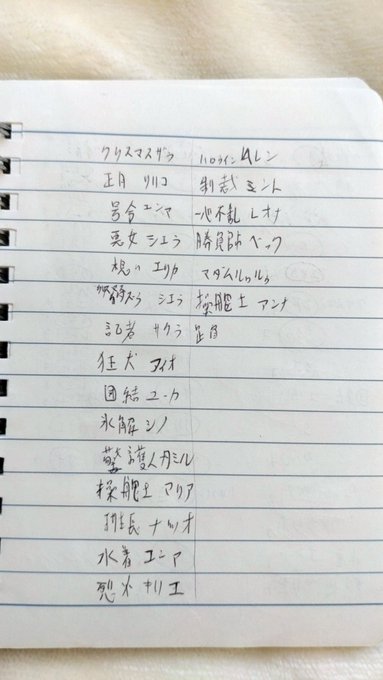 クリスマスザラ
正月 リリコ
号令 エンマ
悪女 シエラ
想い エリカ
シエラ
記者 サクラ
狂犬 アイオ
団結 ユーカ
氷解 シノ
警護人 カミル
操舵士 マリア
班長 ナツオ
水着 エンマ
烈火 キリエ
ハロウィン カレン
制裁 ミント
一心不乱 レオナ
勝負師 ベック
マダム ルゥルゥ
操舵士 アンナ
正月